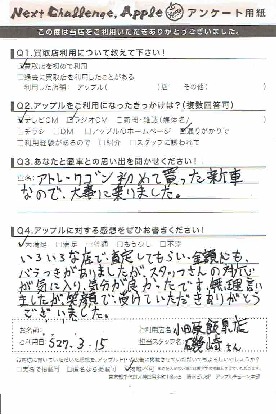 Next Challenge, Apple アンケート用紙
この度は当店をご利用いただきありがとうございました。
Q1.買取店利用について教えて下さい!
□買取店を初めて利用
□過去に買取店を利用したことがある
利用した店舗 アップル( 店 その他( )
Q2.アップルをご利用になったきっかけは?(複数回答可)
□テレビCM □ラジオCM □新聞・雑誌(媒体名/ )
□チラシ □DM □アップルのホームページ □通りがかりで
□ご利用経験があるので □紹介 □スタッフに誘われて
Q3.あなたと愛車との思い出をお聞かせください!
車名: アトレーワゴン 初めて買った新車
なので、大事に乗りました。
Q4.アップルに対する感想をぜひお書きください!
□大満足 □満足 □普通 □もの足りない □不満
いろいろな店で、査定してもらい、金額にも、
バラつきがありましたが、スタッフさんの対応
が気に入り、気分が良かったです。無理言い
ましたが笑顔で、受けていただきありがとう
ございました。
お名前:
ご利用店名: 小田原飯泉店
ご利用日 S27.3.15
担当スタッフ名: 磯崎さん